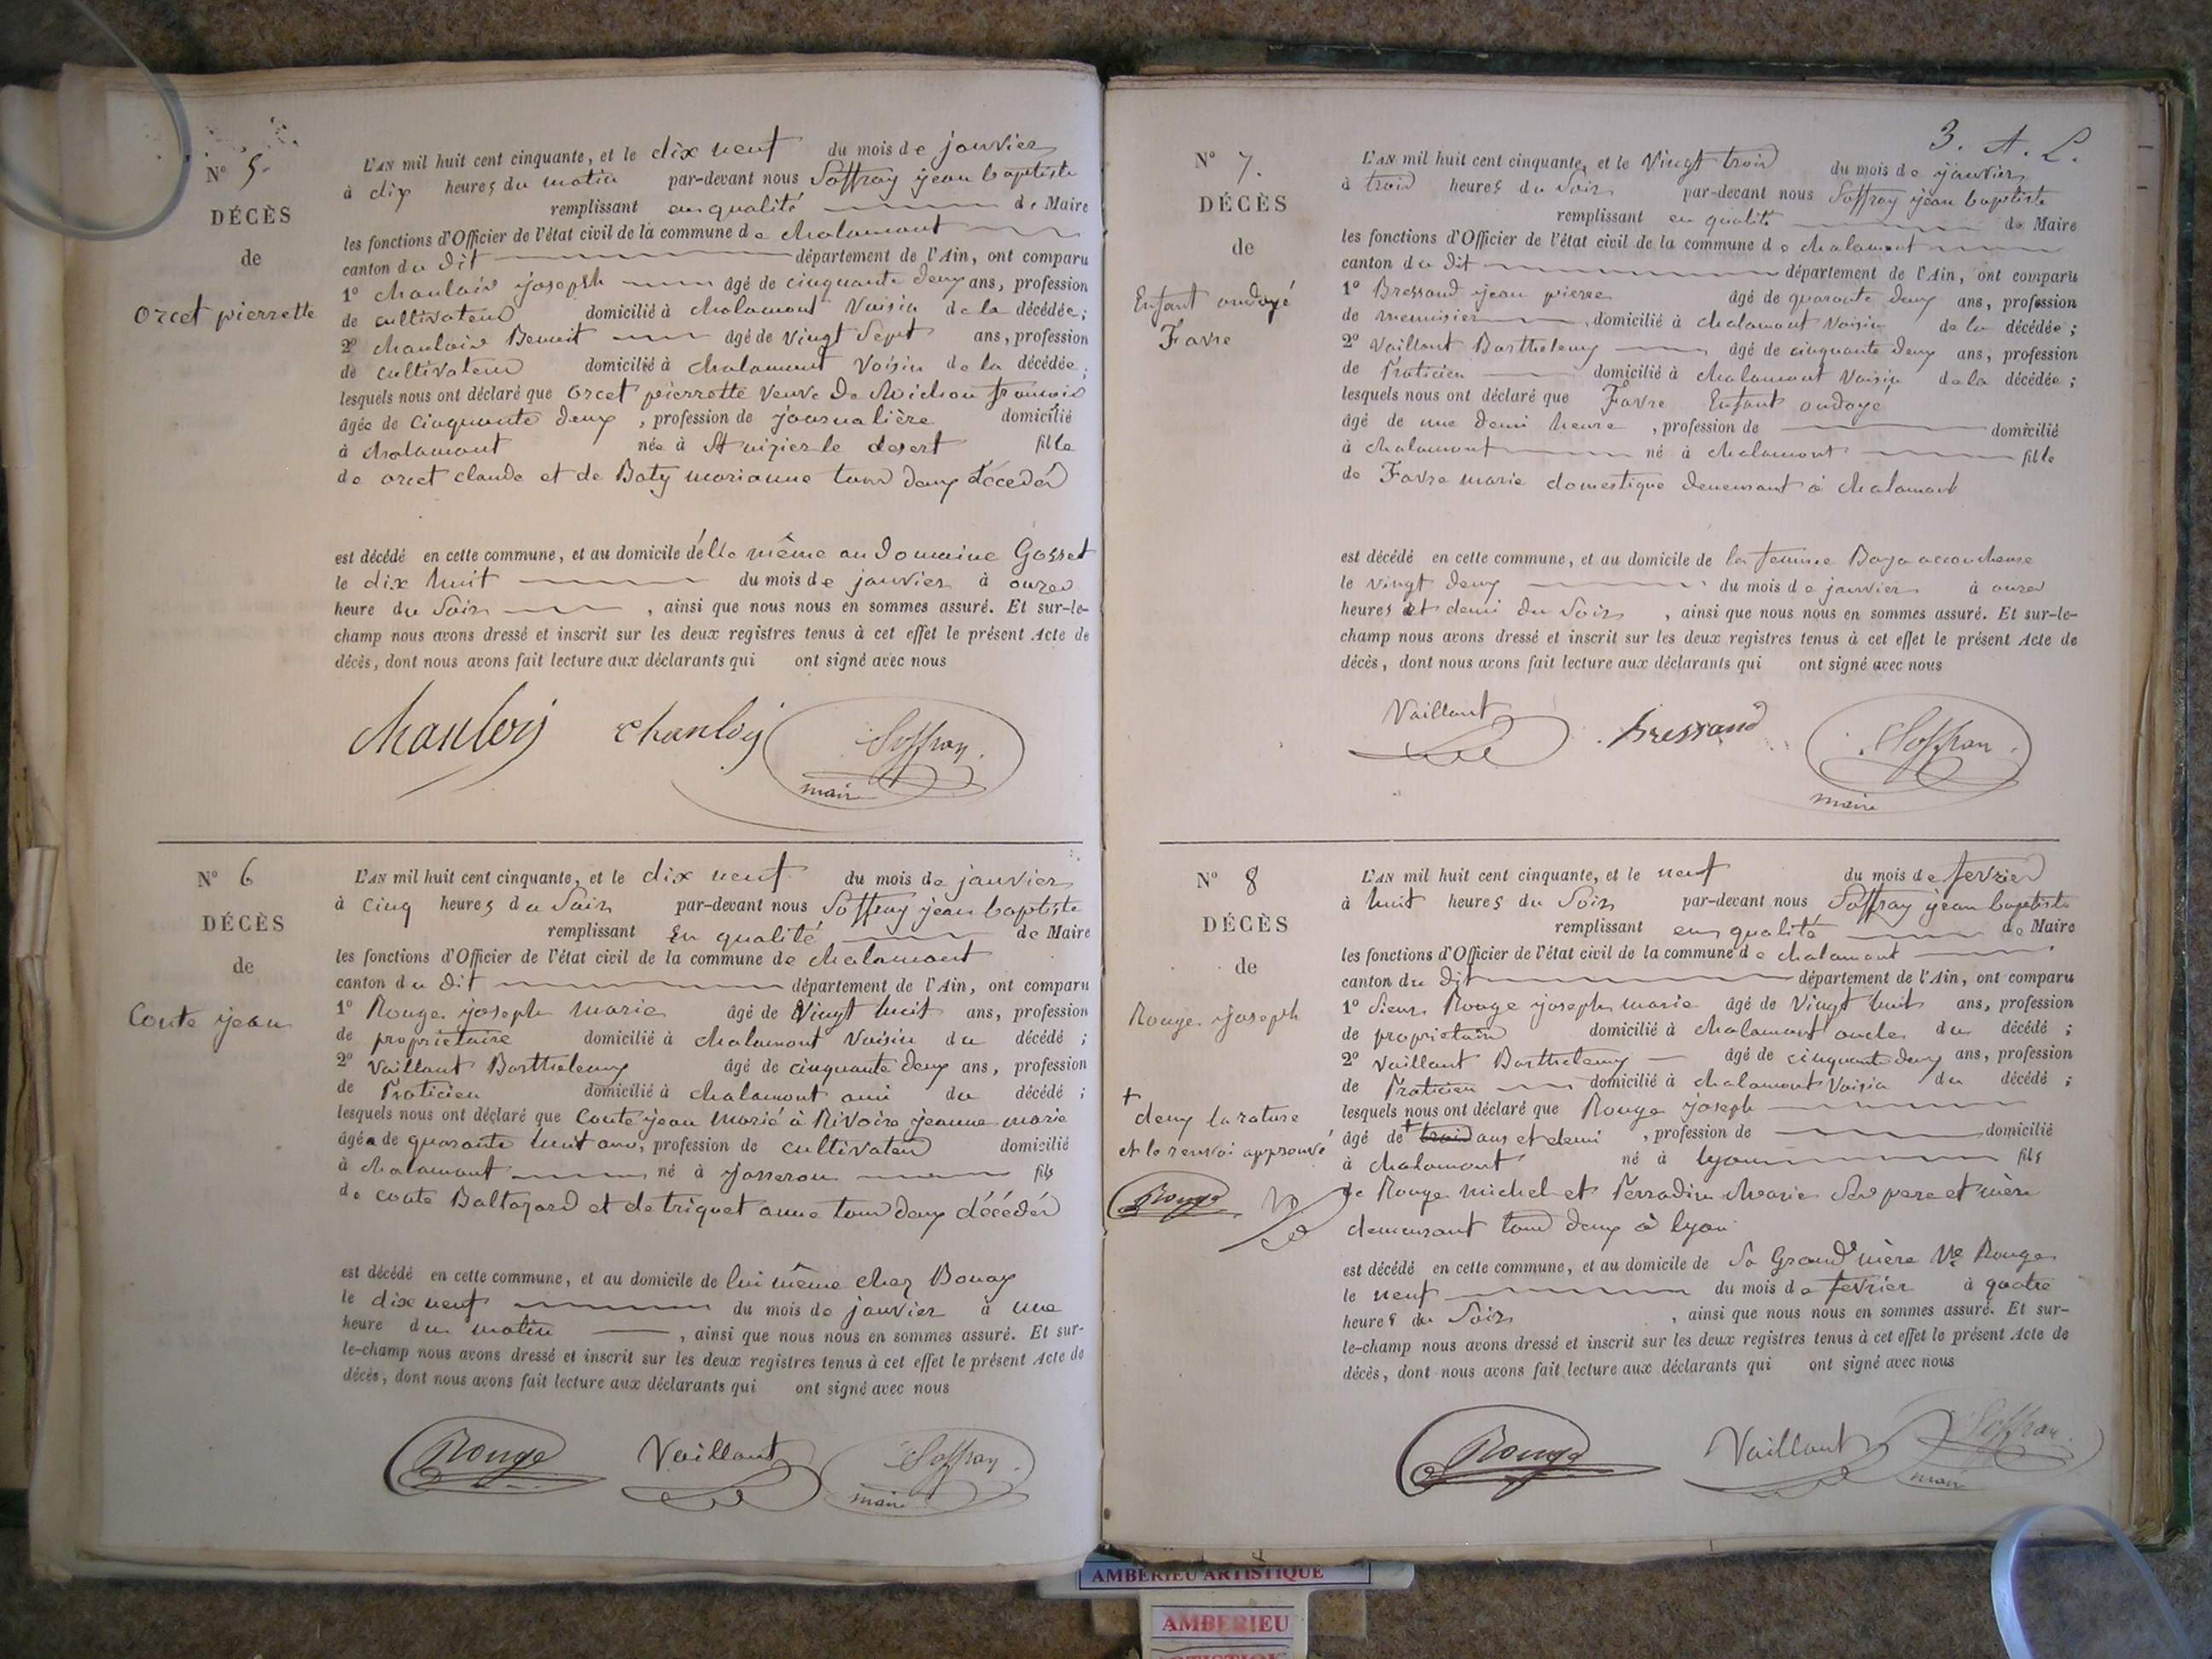 N° 5.
DÉCÈS
de
Orcet pierrette
L'AN mil huit cent cinquante, et le dix neuf du mois de janvier
à dix heures du matin par-devant nous Soffray jean baptiste
remplissant en qualité de Maire
les fonctions d'Officier de l'état civil de la commune de chalamont
canton du dit département de l'Ain, ont comparu
1° chanlois joseph âgé de cinquante deux ans, profession
de cultivateur domicilié à chalamont Voisin de la décédée;
2° chanlois Benoit âgé de Vingt Sept ans, profession
de cultivateur domicilié à chalamont Voisin de la décédée;
lesquels nous ont déclaré que Orcet pierrette Veuve De françois
âgée de cinquante deux, profession de journalière domicilié
à chalamont née à St nizier le desert fille
de orcet claude et de Baty marianne tous deux décédés
est décédé en cette commune, et au domicile d'elle même au domaine Gosset
le dix huit du mois de janvier à onzes
heure du Soir, ainsi que nous nous en sommes assuré. Et sur-le-
champ nous avons dressé et inscrit sur les deux registres tenus à cet effet le présent Acte de
décès, dont nous avons fait lecture aux déclarants qui ont signé avec nous
chanlois chanlois Soffray
maire
N° 6
DÉCÈS
de
Conte jean
L'AN mil huit cent cinquante, et le dix neuf du mois de janvier
à cinq heures du Soir par-devant nous Soffray jean baptiste
remplissant En qualité de Maire
les fonctions d'Officier de l'état civil de la commune de chalamont
canton du dit département de l'Ain, ont comparu
1° Rouge joseph marie âgé de Vingt huit ans, profession
de propriétaire domicilié à chalamont Voisin du décédé;
2° Vaillant Barthelemy âgé de cinquante deux ans, profession
de Praticien domicilié à chalamont ami du décédé;
lesquels nous ont déclaré que Conte jean Marié à Rivoire jeanne marie
âgé de quarante huit ans, profession de cultivateur domicilié
à chalamont né à Josseron fils
de conte Baltazard et de triquet anne tous deux décédés
est décédé en cette commune, et au domicile de lui même chez Bonay
le dix neuf du mois de janvier à une
heure du matin, ainsi que nous nous en sommes assuré. Et sur-
le-champ nous avons dressé et inscrit sur les deux registres tenus à cet effet le présent Acte de
décès, dont nous avons fait lecture aux déclarants qui ont signé avec nous
Rouge Vaillant Soffray
maire
3. A. L.
N° 7.
DÉCÈS
de
Enfant ondoyé
Favre
L'AN mil huit cent cinquante, et le Vingt trois du mois de janvier
à trois heures du Soir par-devant nous Soffray jean baptiste
remplissant en qualité de Maire
les fonctions d'Officier de l'état civil de la commune de chalamont
canton du dit département de l'Ain, ont comparu
1° Bressand jean pierre âgé de quarante deux ans, profession
de menuisier domicilié à chalamont Voisin de la décédée;
2° Vaillant Barthelemy âgé de cinquante deux ans, profession
de Praticien domicilié à chalamont Voisin de la décédée;
lesquels nous ont déclaré que Favre Enfant ondoyé
âgé de une demi heure, profession de domicilié
à chalamont né à chalamont fille
de Favre marie domestique demeurant à chalamont
est décédé en cette commune, et au domicile de la femme accoucheuse
le vingt deux du mois de janvier à onzes
heures et demi du Soir, ainsi que nous nous en sommes assuré. Et sur-le-
champ nous avons dressé et inscrit sur les deux registres tenus à cet effet le présent Acte de
décès, dont nous avons fait lecture aux déclarants qui ont signé avec nous
Vaillant bressand Soffray
maire
N° 8
DÉCÈS
de
Rouge joseph
+
deux la rature
et le renvoi approuvé
Rouge
L'AN mil huit cent cinquante, et le neuf du mois de fevrier
à huit heures du Soir par-devant nous Soffray jean baptiste
remplissant en qualité de Maire
les fonctions d'Officier de l'état civil de la commune de chalamont
canton du dit département de l'Ain, ont comparu
1° Sieur Rouge joseph marie âgé de Vingt huit ans, profession
de propriétaire domicilié à chalamont oncle du décédé;
2° Vaillant Barthelemy âgé de cinquante deux ans, profession
de Praticien domicilié à chalamont Voisin du décédé;
lesquels nous ont déclaré que Rouge joseph
âgé de + trois ans et demi, profession de domicilié
à chalamont né à lyon fils
de Rouge michel et Perradin Marie Ses pere et mère
demeurant tous deux à lyon
est décédé en cette commune, et au domicile de Sa Grand'mère Ve Rouge
le neuf du mois de fevrier à quatre
heures du Soir, ainsi que nous nous en sommes assuré. Et sur-
le-champ nous avons dressé et inscrit sur les deux registres tenus à cet effet le présent Acte de
décès, dont nous avons fait lecture aux déclarants qui ont signé avec nous
Rouge Vaillant Soffray
maire
AMBERIEU ARTISTIQUE
AMBERIEU
ARTISTIQUE